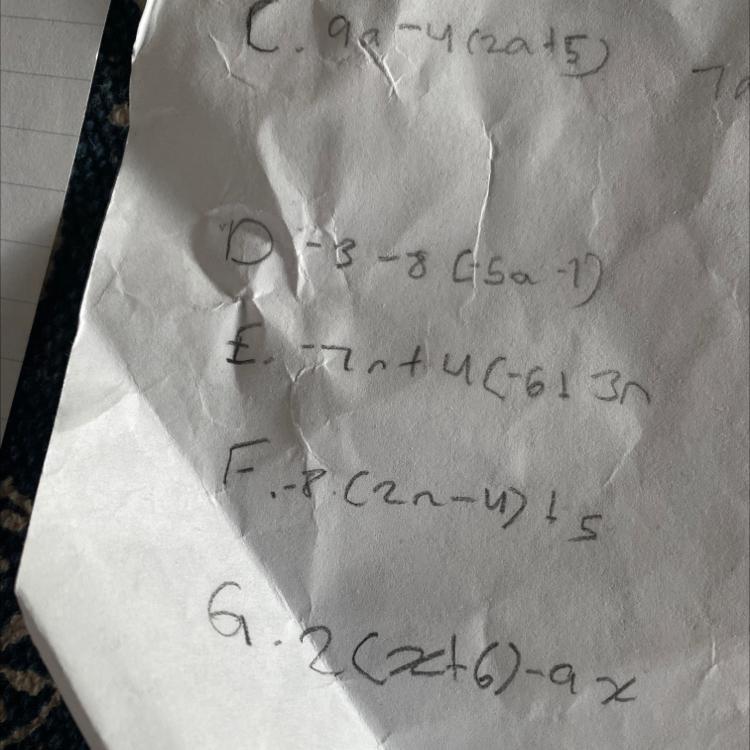 C. 9a-4(2a+5)
D -3 -8 (-5a -1)
E. -7n+4(-6+3n
F. -8.(2n-4)+5
G. 2(x+6)-9x